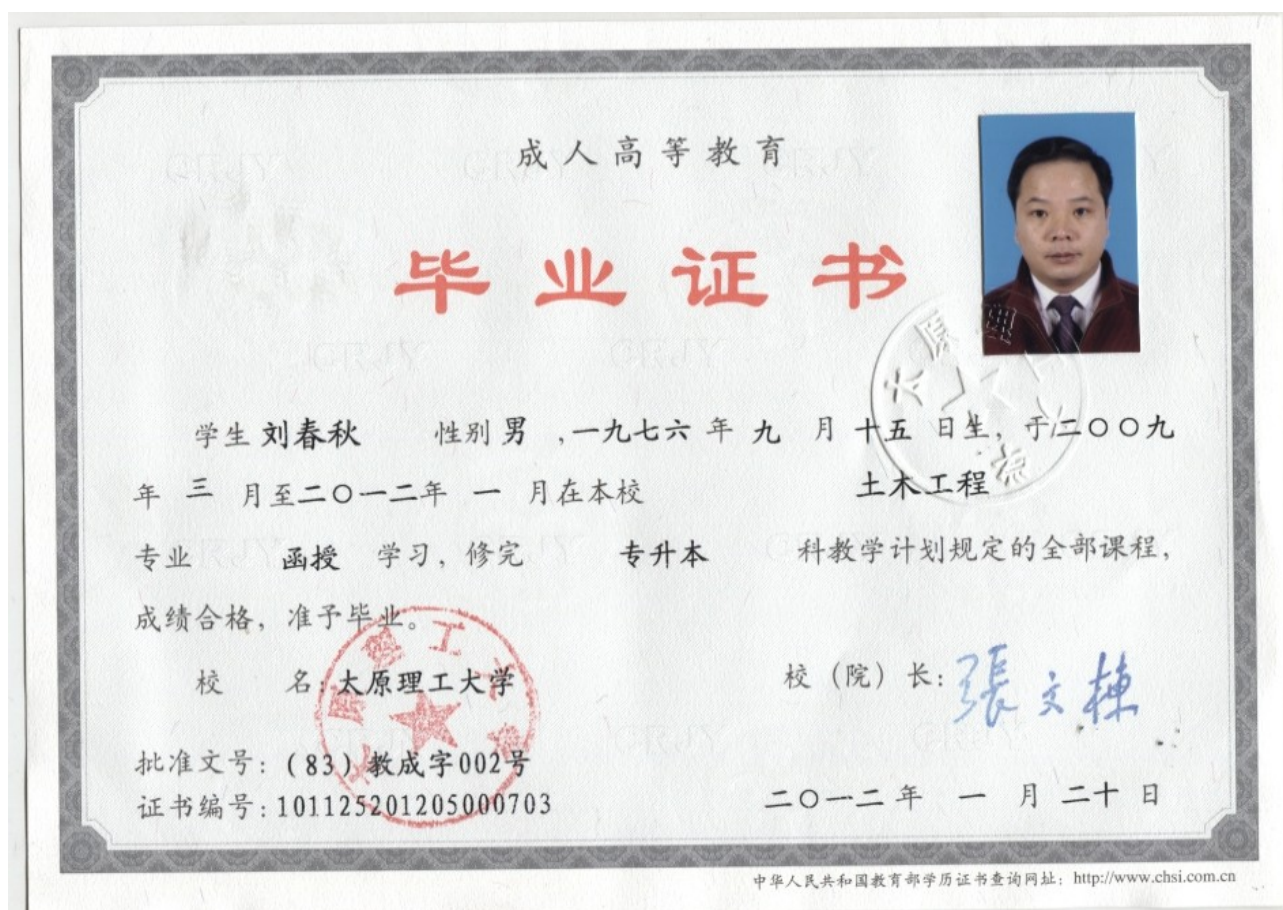 成人高等教育
毕业证书
学生 刘春秋 性别 男 ,一九七六 年 九 月 十五 日生, 于二〇〇九
年 三 月至二〇一二年 一 月在本校 土木工程
专业 函授 学习, 修完 专升本 科教学计划规定的全部课程,
成绩合格, 准予毕业。
校 名: 太原理工大学
校 (院) 长: 張文棟
批准文号: (83) 教成字002号
证书编号: 101125201205000703
二〇一二 年 一 月 二十 日
太原理工大学
中华人民共和国教育部学历证书查询网址: http://www.chsi.com.cn